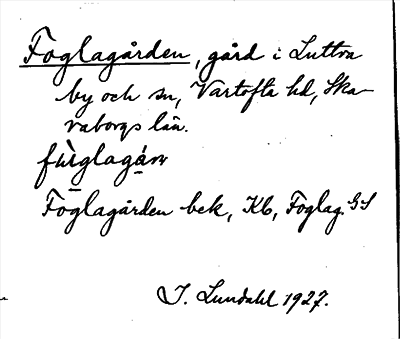 Foglagården, gård i Luttra
by och sn, Vartofta hd, Ska-
raborgs län.
fùglagán
Foglagården bek, Kb, Foglag. GS
J. Lundahl 1927.